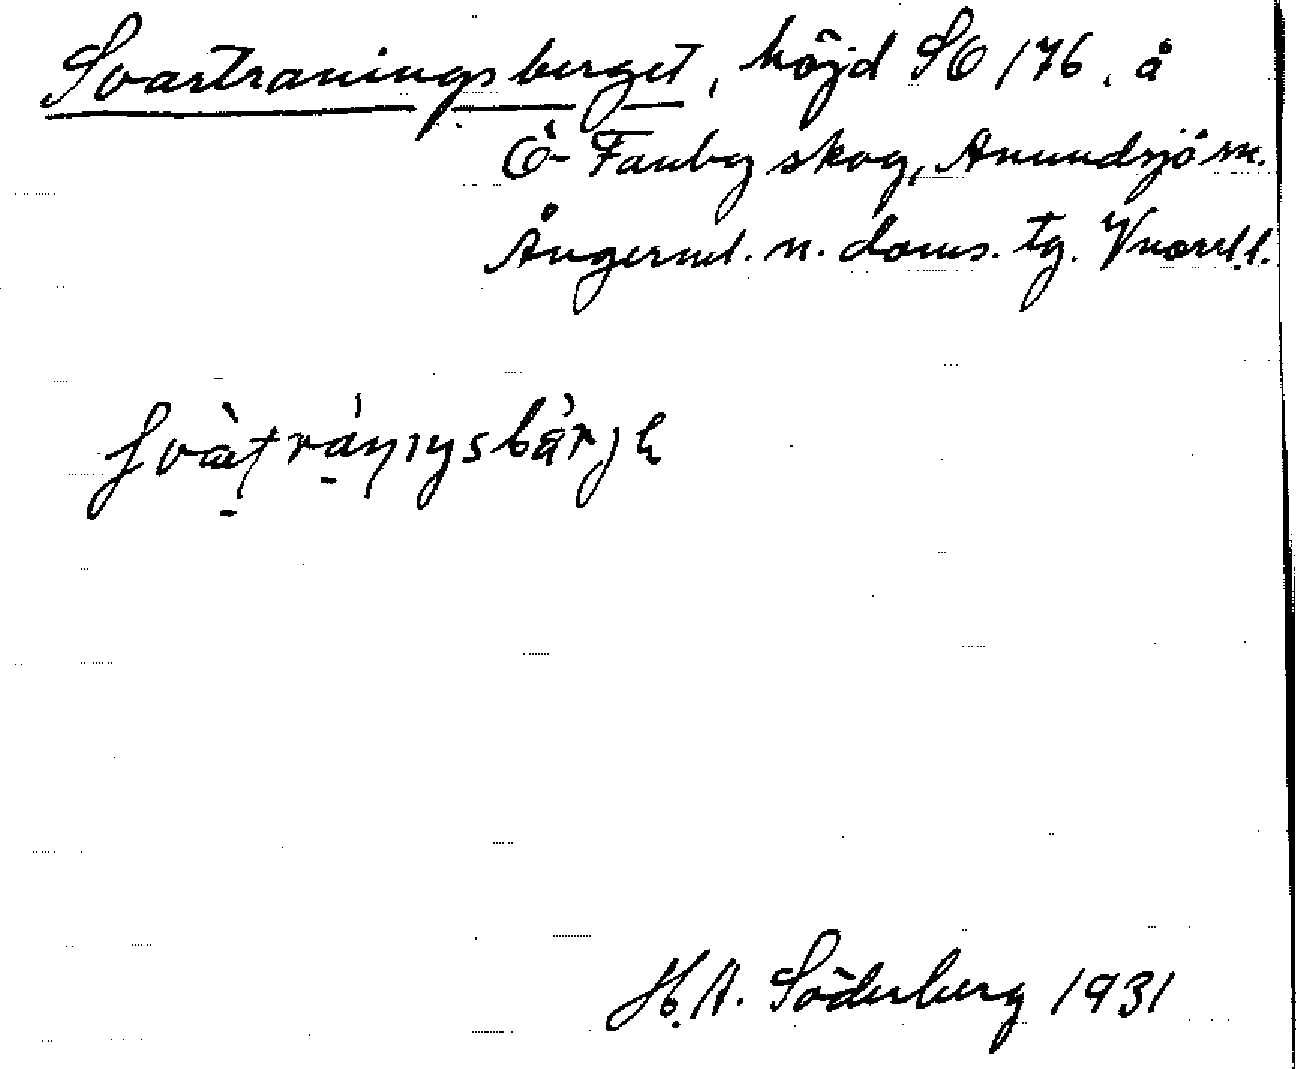 Svartraningsberget, höjd SO 176, å
Ö- Fanby skog, Anundsjö sn.
Ångerml. n. doms. tg. Vnorrl. l.
svàtrániŋsbàrjə
H. A. Söderberg 1931